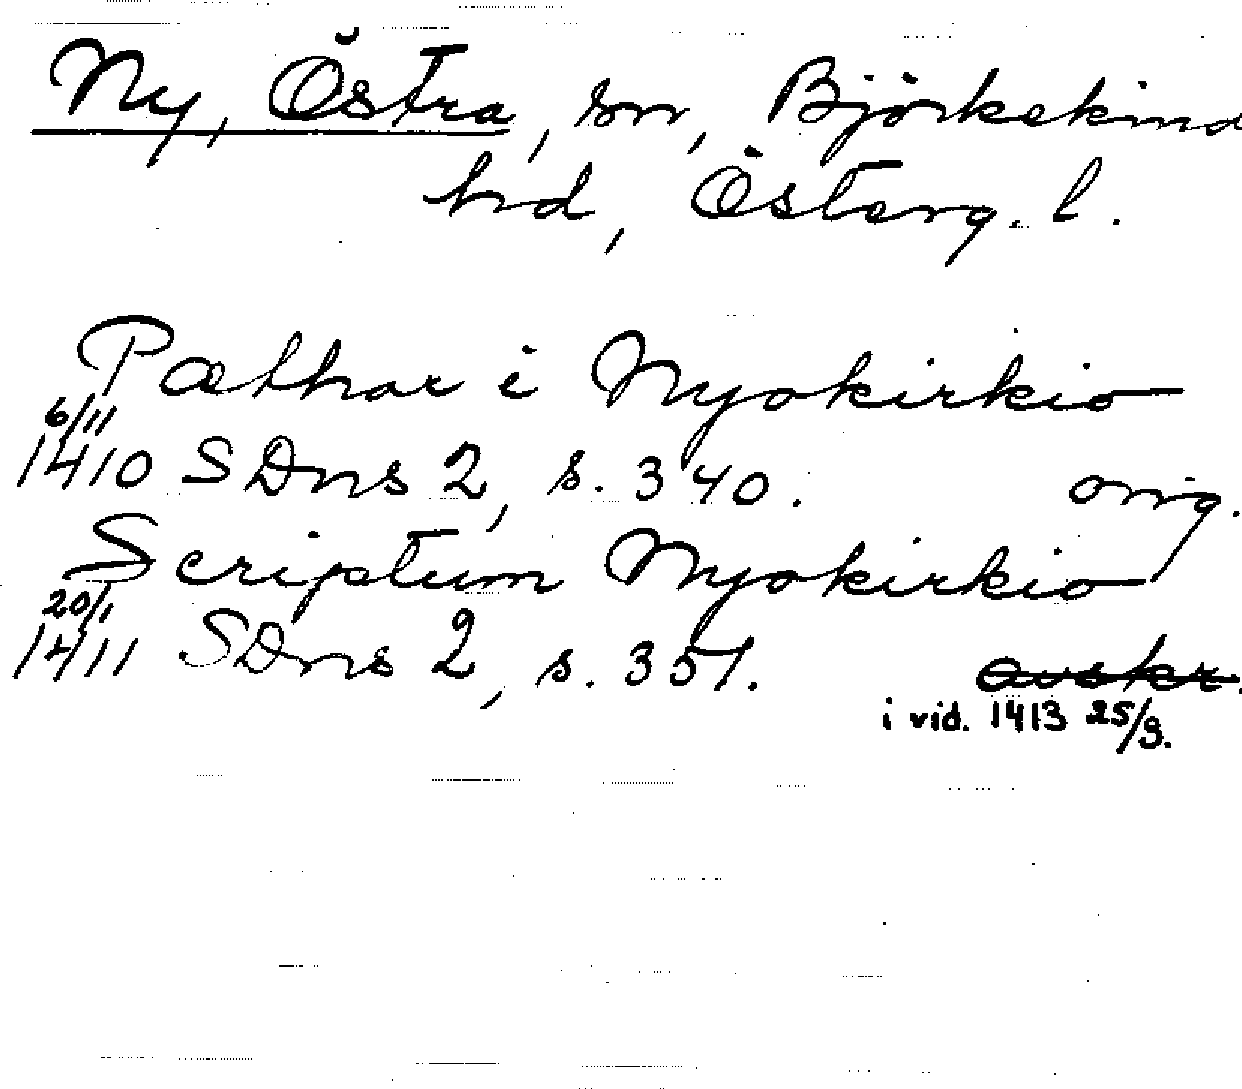 Ny, Östra, sn, Björkekind
hd, Österg. l.
Pæthar i Nyokirkio
6/11
1410 SDns 2, s. 340. orig.
Scriptum Nyokirkio
20/1
1411 SDns 2, s. 351. avskr.
i vid. 1413 25/3.